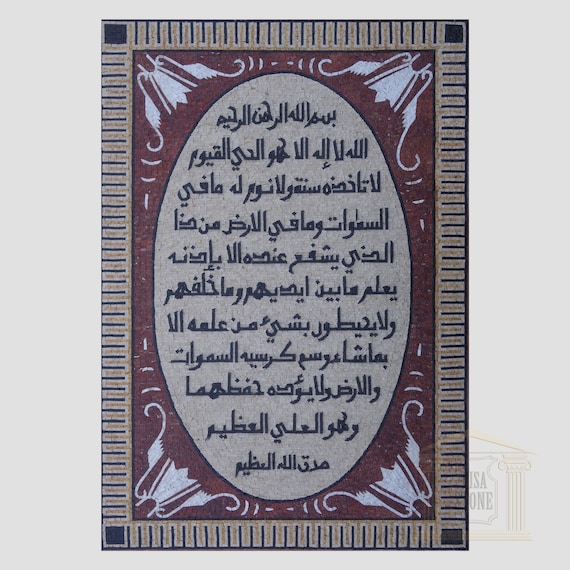 بسم الله الرحمن الرحيم
الله لا إله الا هو الحي القيوم
لا تأخذه سنة ولا نوم له ما في
السموات وما في الارض من ذا
الذي يشفع عنده الا بإذنه
يعلم ما بين ايديهم وما خلفهم
ولا يحيطون بشيء من علمه الا
بما شاء وسع كرسيه السموات
والارض ولا يؤده حفظهما
وهو العلي العظيم
صدق الله العظيم